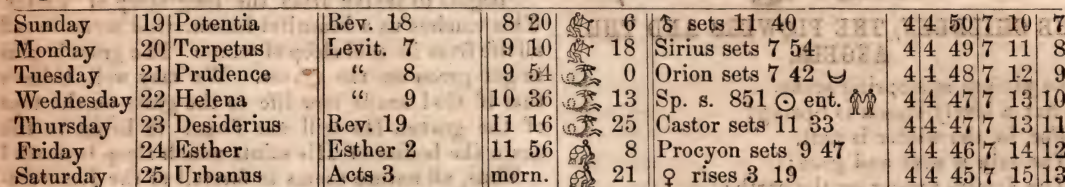 Sunday 19 Potentia Rev. 18 8 20 6 ♄ sets 11 40 4 4 50 7 10 7
Monday 20 Torpetus Levit. 7 9 10 18 Sirius sets 7 54 4 4 49 7 11 8
Tuesday 21 Prudence “ 8 9 54 0 Orion sets 7 42 4 4 48 7 12 9
Wednesday 22 Helena “ 9 10 36 13 Sp. s. 851 ☉ ent. ♊ 4 4 47 7 13 10
Thursday 23 Desiderius Rev. 19 11 16 25 Castor sets 11 33 4 4 47 7 13 11
Friday 24 Esther Esther 2 11 56 8 Procyon sets 9 47 4 4 46 7 14 12
Saturday 25 Urbanus Acts 3 morn. 21 ♀ rises 3 19 4 4 45 7 15 13